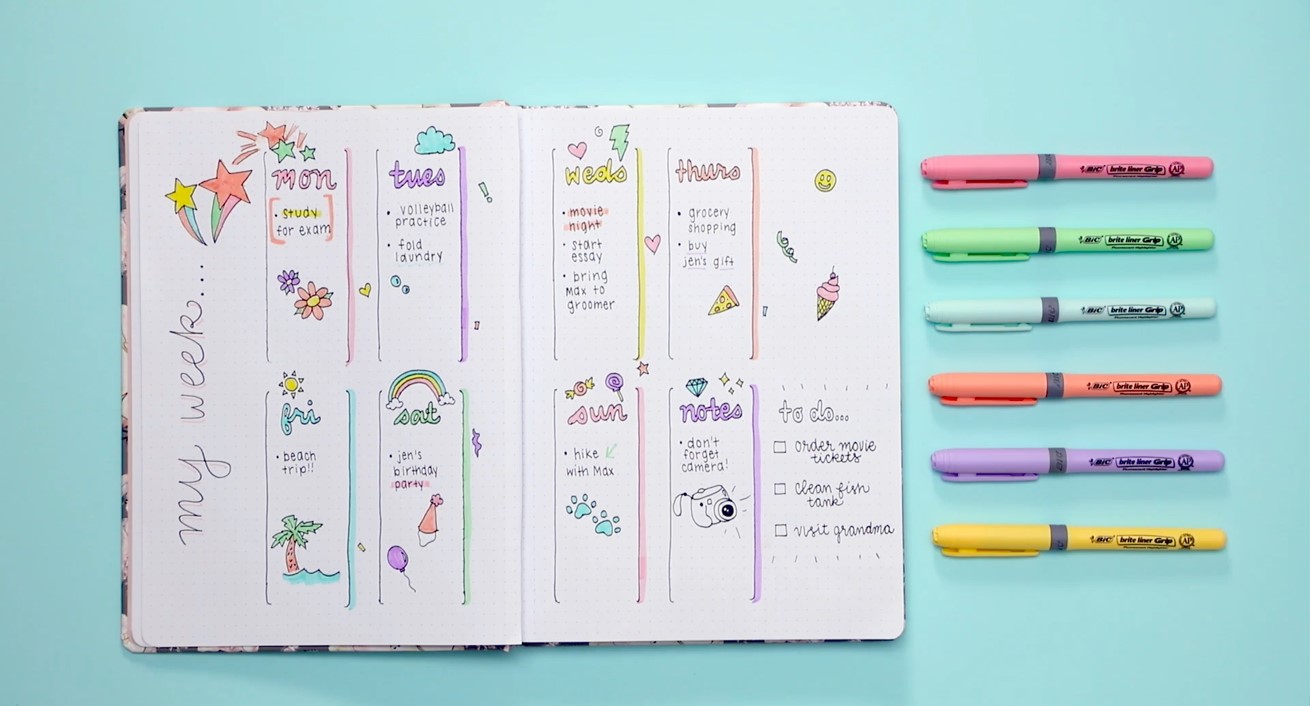 my week...
mon
• study
for exam
tues
• volleyball
practice
• fold
laundry
weds
• movie
night
• start
essay
• bring
Max to
groomer
thurs
• grocery
shopping
• buy
jen's gift
fri
• beach
trip!!
sat
• jen's
birthday
party
sun
• hike
with Max
notes
• don't
forget
camera!
to do...
order movie
tickets
clean fish
tank
visit grandma
BIC brite liner Grip AP
BIC brite liner Grip AP
BIC brite liner Grip AP
BIC brite liner Grip AP
BIC brite liner Grip AP
BIC brite liner Grip AP